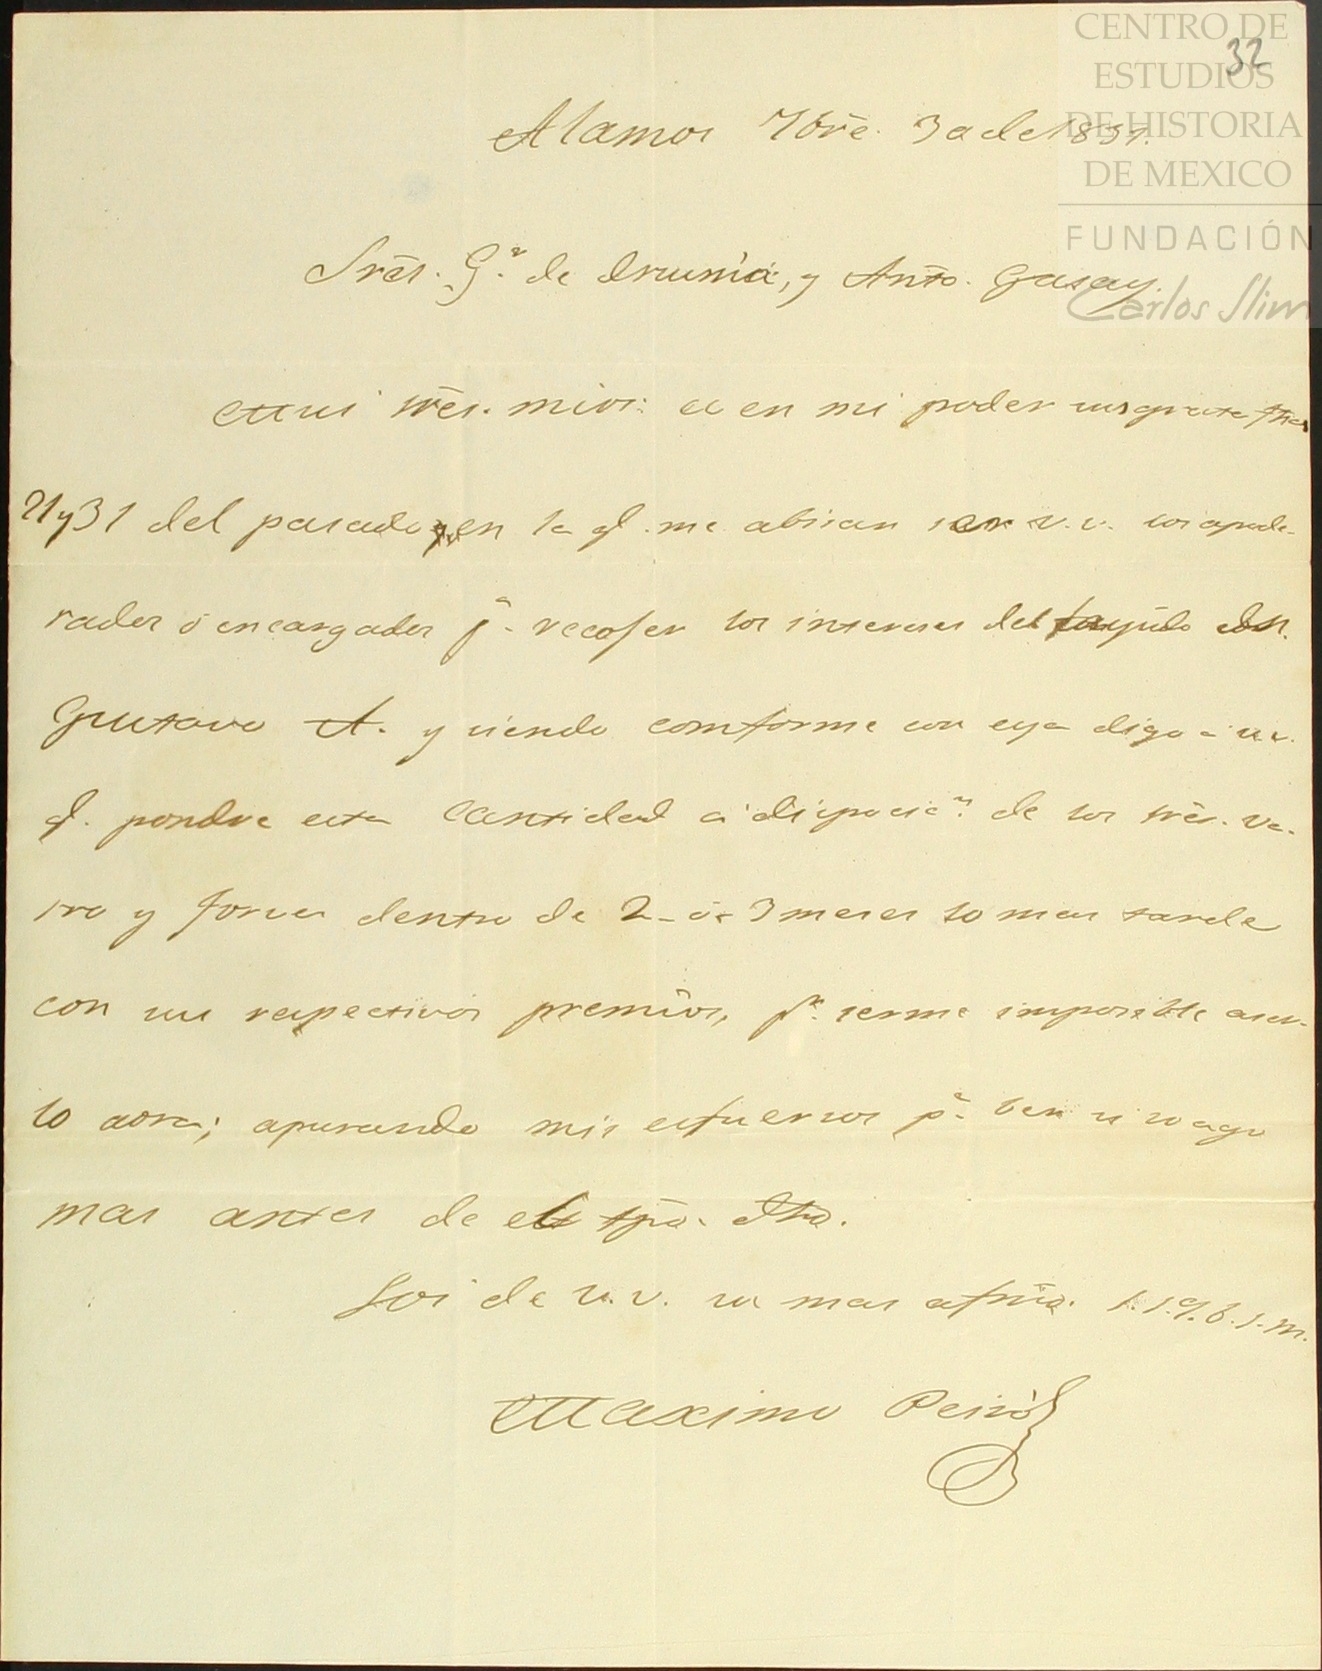 CENTRO DE
ESTUDIOS
DE HISTORIA
DE MEXICO
FUNDACIÓN
Carlos Slim
32
Alamos 7bre. 3 de 1851.
Sres. G.r de y Anto.
Mui sres. mios: en mi poder
21 y 31 del pasado en la q. me abisan ser v.v. los apode-
rados ó encargados p.a recojer los intereses del Dn.
Gustavo A. y siendo comforme con eya digo a vv.
q. pondre esta cantidad a dispocic.n de los sres. Va-
sro y Torres dentro de 2 ó 3 meses lo mas tarde
con sus respectivos premios, p.r serme imposible aser-
lo aora; apurando mis esfuersos p.a ber si lo ago
mas antes de el tpo. dho.
Soi de v.v. su mas afmo. s.s.q.b.s.m.
Maximo